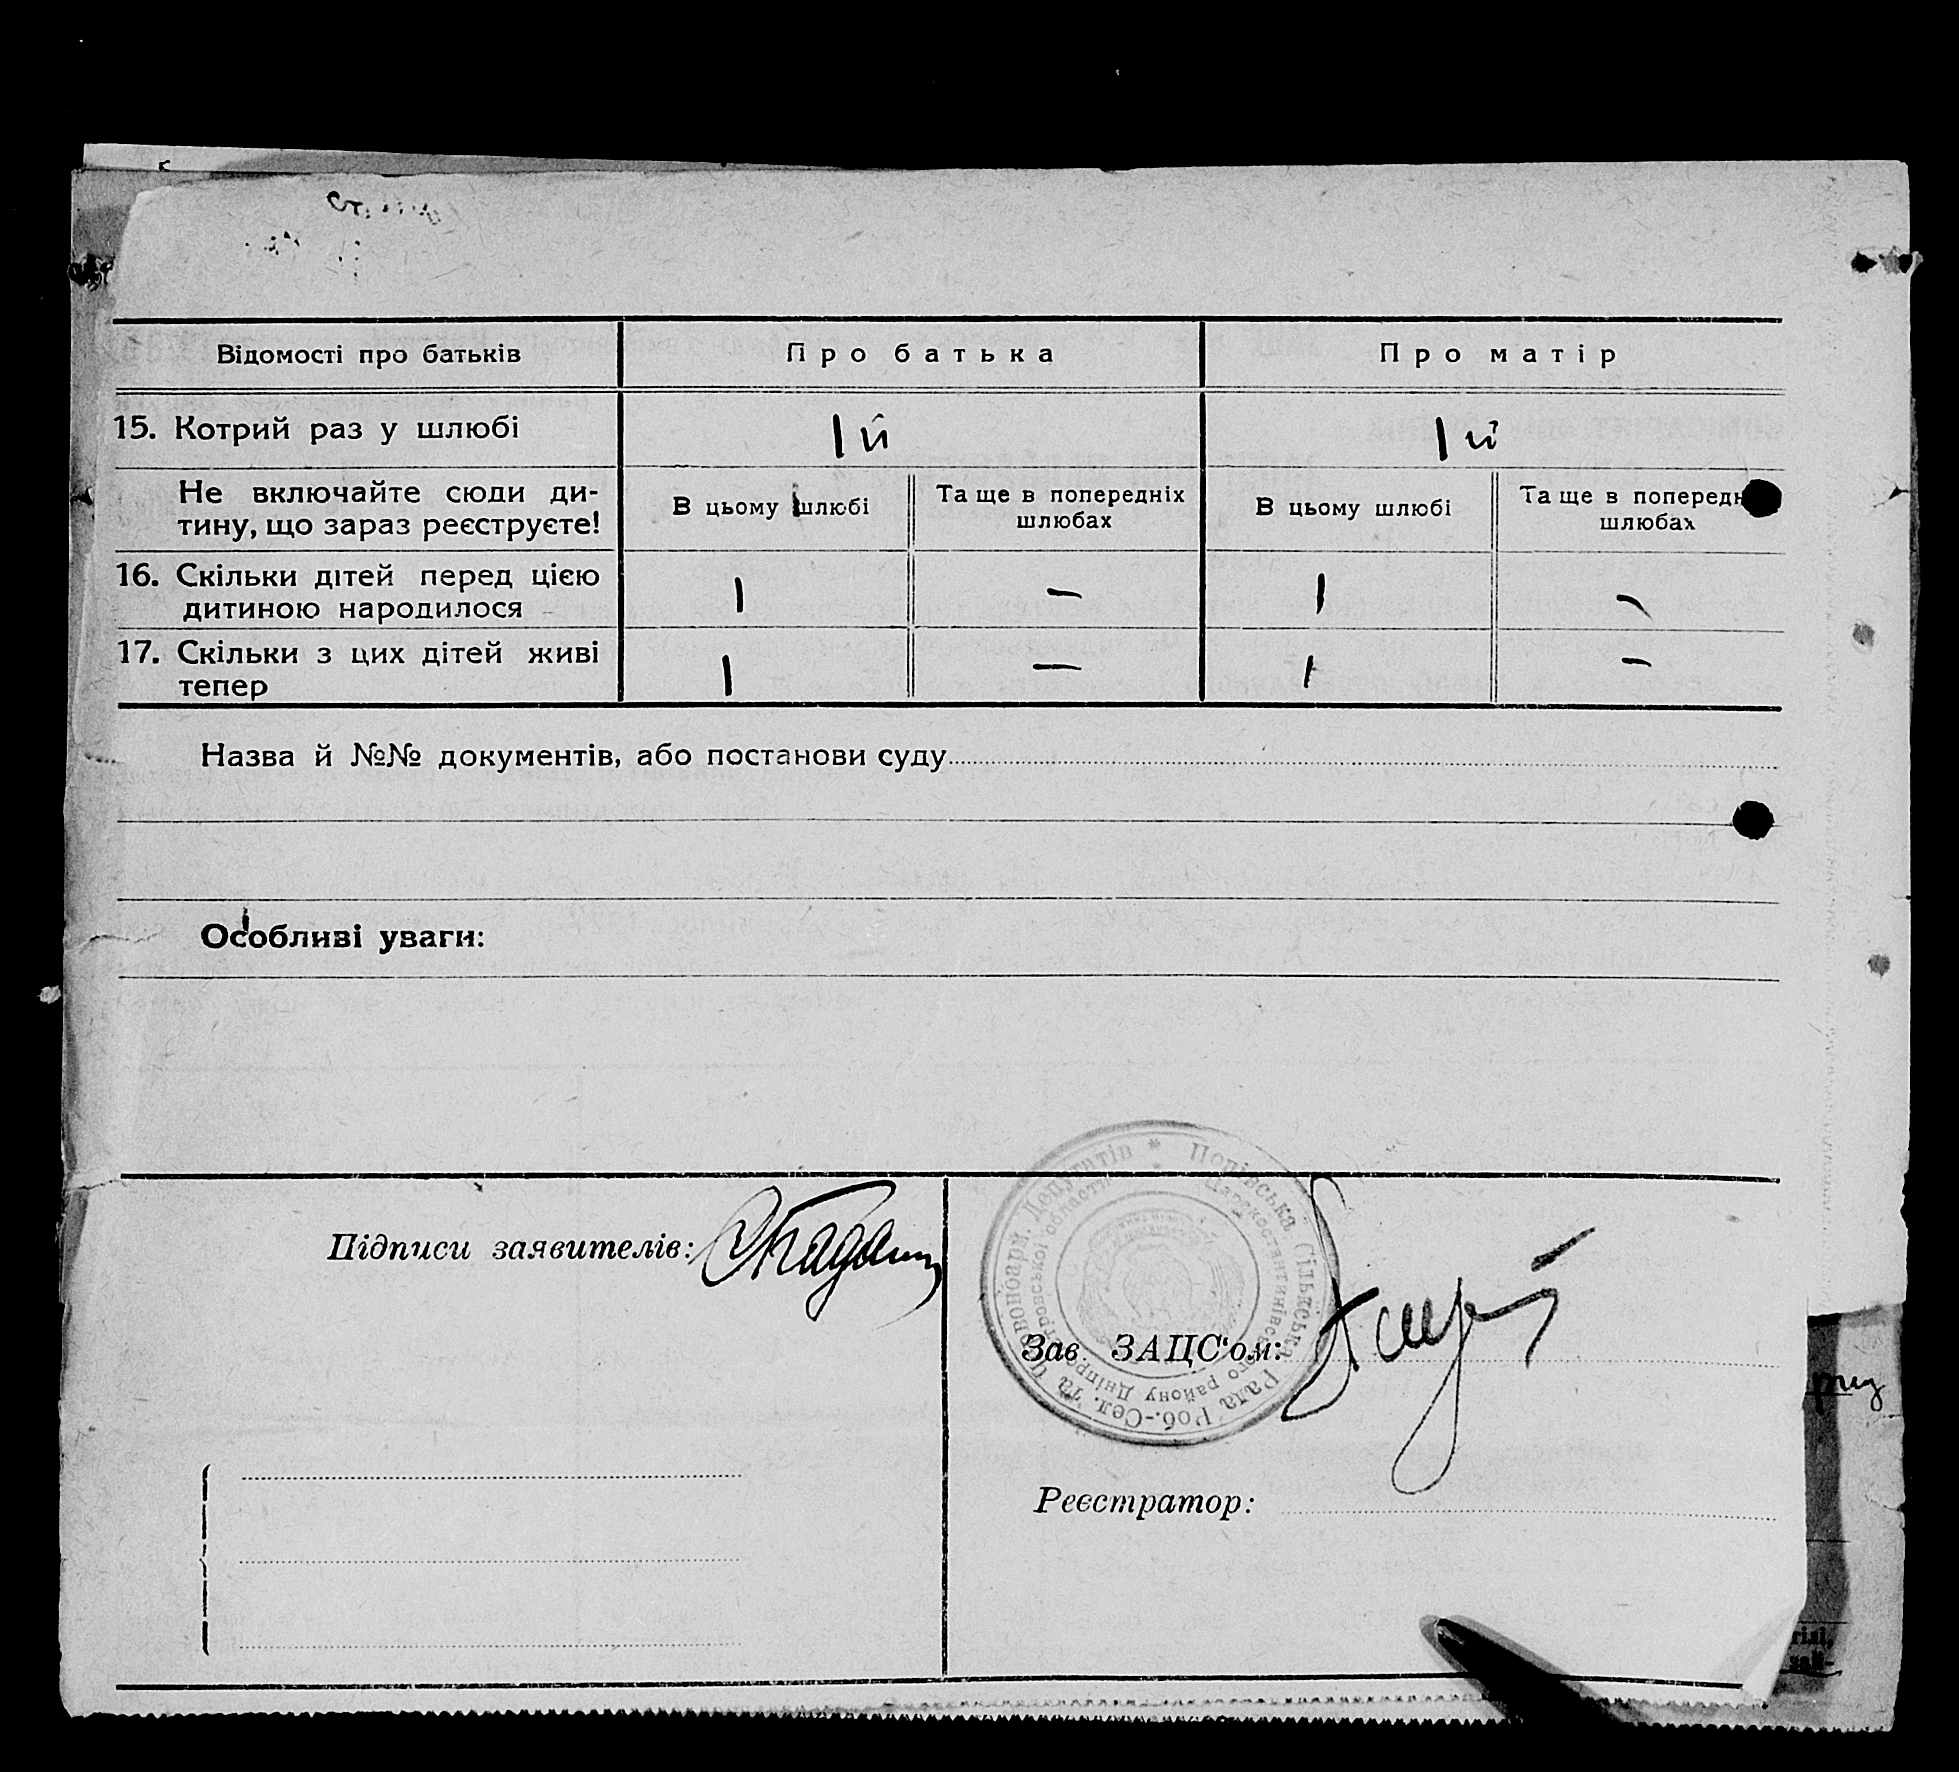 Відомості про батьків
Про батька
Про матір
15. Котрий раз у шлюбі
1й
1й
Не включайте сюди ди-
тину, що зараз реєструєте!
В цьому шлюбі
Та ще в попередніх
шлюбах
В цьому шлюбі
Та ще в попередн
шлюбах
16. Скільки дітей перед цією
дитиною народилося
1
—
1
—
17. Скільки з цих дітей живі
тепер
1
—
1
—
Назва й №№ документів, або постанови суду
Особливі уваги:
Підписи заявителів:
Попівська Сільська Рада Роб.-Сел. та Червоноарм. Депутатів *
Царекостянтинівського району Дніпропетровської області
Зав. ЗАЦС'ом:
Реєстратор: